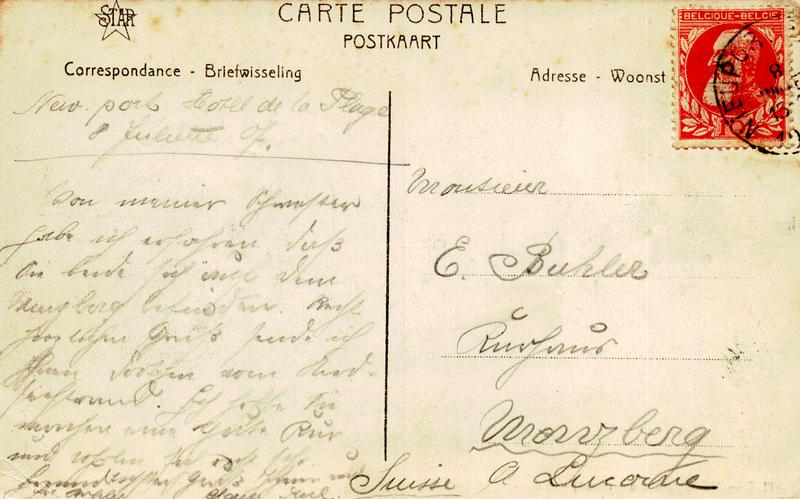 STAR
CARTE POSTALE
POSTKAART
Correspondance - Briefwisseling
Adresse - Woonst
BELGIQUE-BELGIE
NIEUPOR
8
13-
New-port Hotel de la Plage
8 Juliette 07.
Von meiner Schwester
habe ich erfahren daß
Sie beide sich auf dem
Menzberg befinden. Recht
herzlichen Gruß sende ich
Ihnen vom
Ich hoffe Sie
machen eine gute Kur
und
Gruß Ihnen
Monsieur
E. Buhler
Kurhaus
Menzberg
Suisse a Lucerne